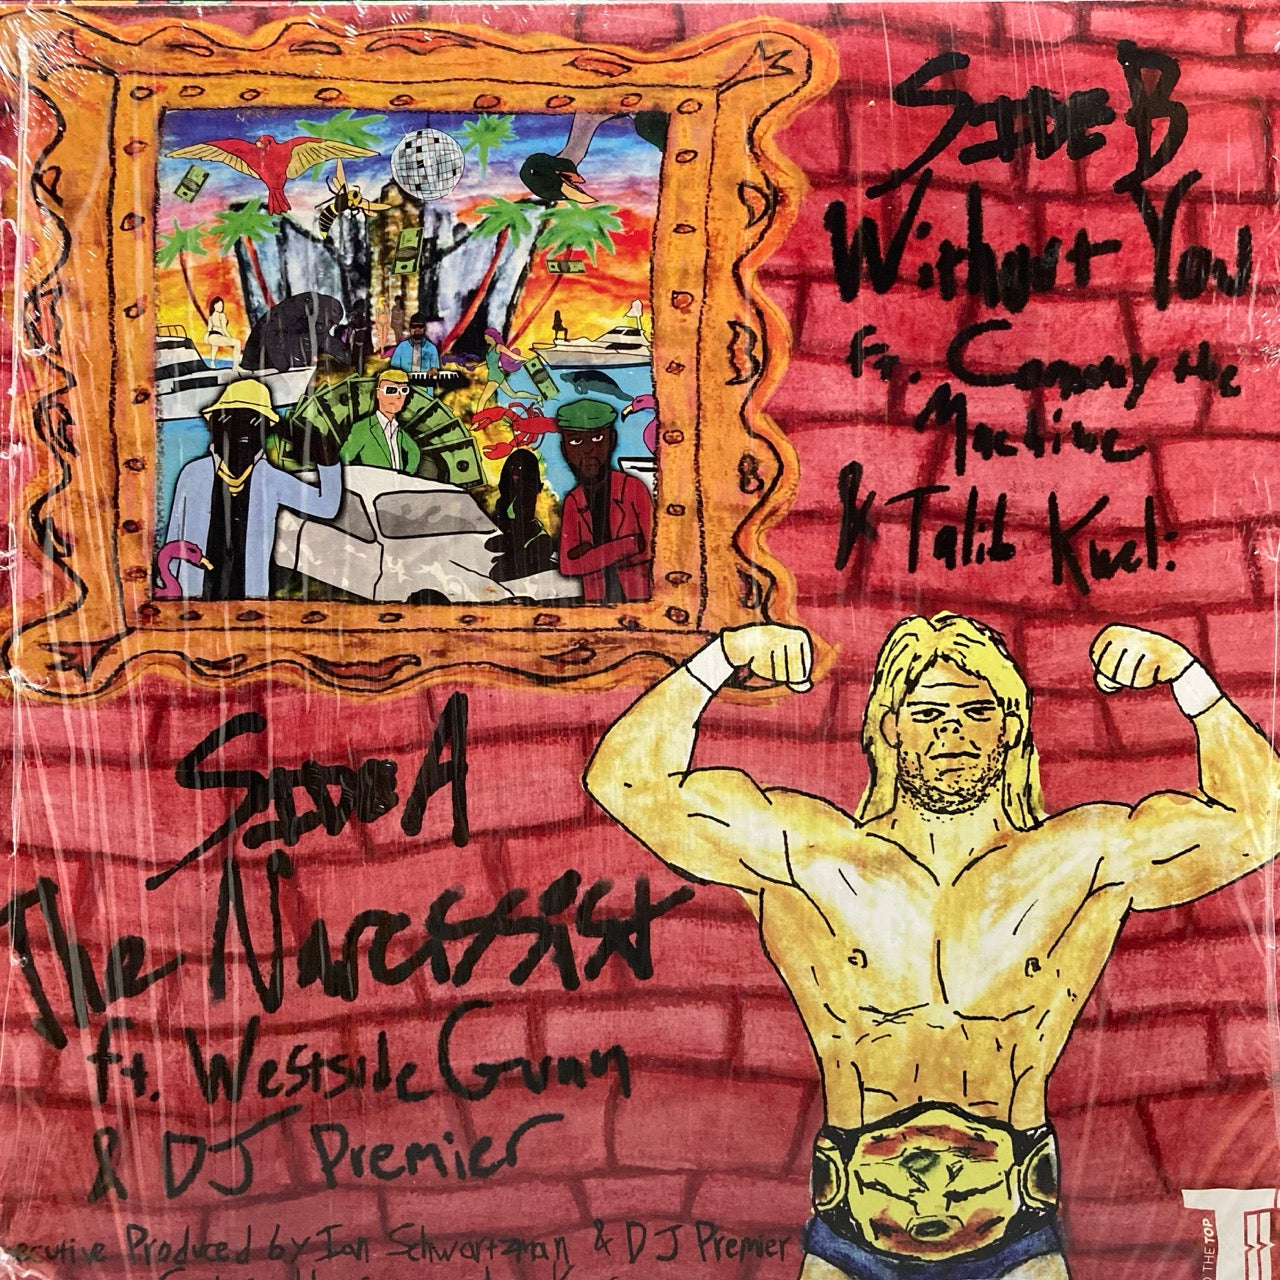 Side B
Without You
Ft. Conway the
Machine
& Talib Kweli
Side A
The Narcissist
ft. Westside Gunn
& DJ Premier
Executive Produced by Ian Schwartzman & DJ Premier
THE TOP